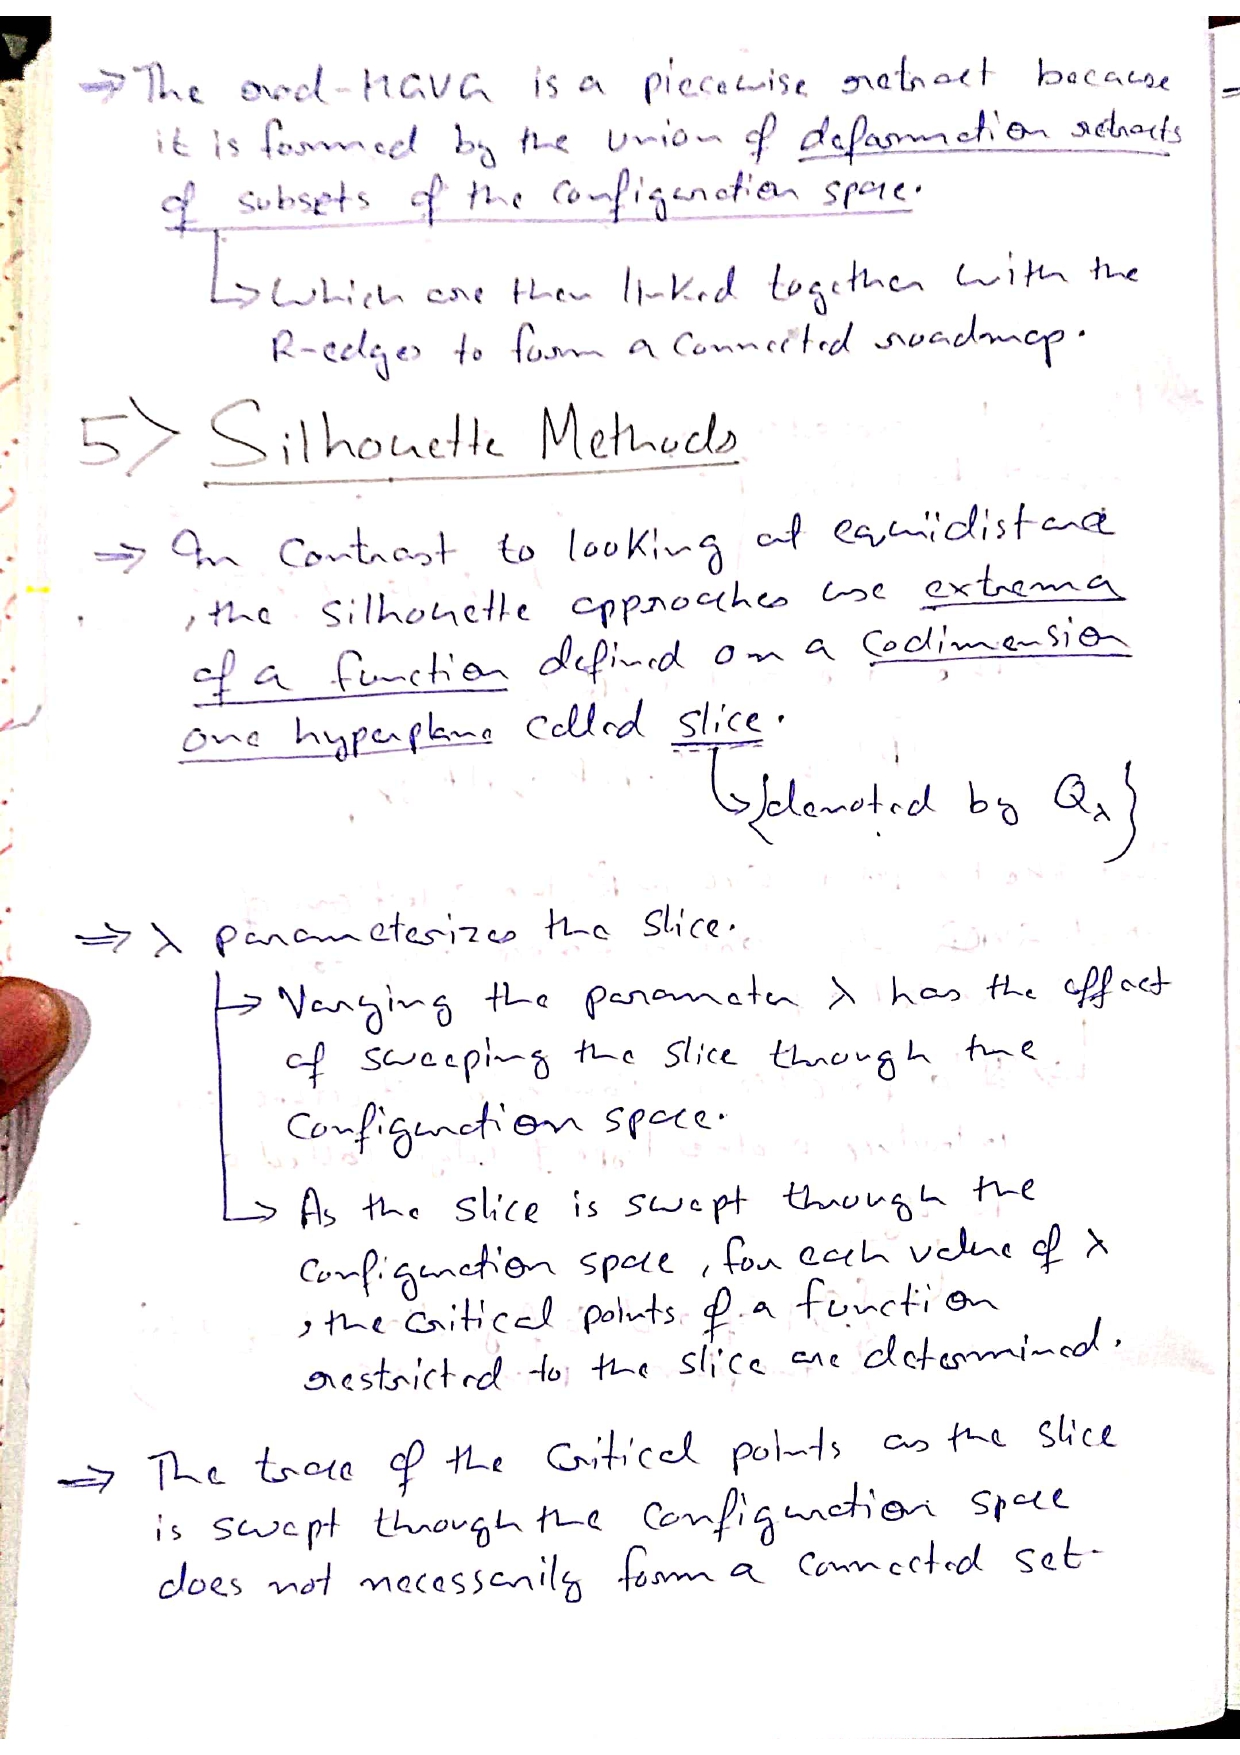 ⇒ The rod-HGVG is a piecewise retract because
it is formed by the union of deformation retracts
of subsets of the configuration space.
↳ Which are then linked together with the
R-edges to form a connected roadmap.
5> Silhouette Methods
⇒ In Contrast to looking at equidistance
, the silhouette approaches use extrema
of a function defined on a codimension
one hyperplane called slice.
↳ {denoted by Qλ}
⇒ λ parameterizes the slice.
↳ Varying the parameter λ has the effect
of sweeping the slice through the
configuration space.
↳ As the slice is swept through the
configuration space, for each value of λ
, the critical points of a function
restricted to the slice are determined.
⇒ The trace of the critical points as the slice
is swept through the configuration space
does not necessarily form a connected set.